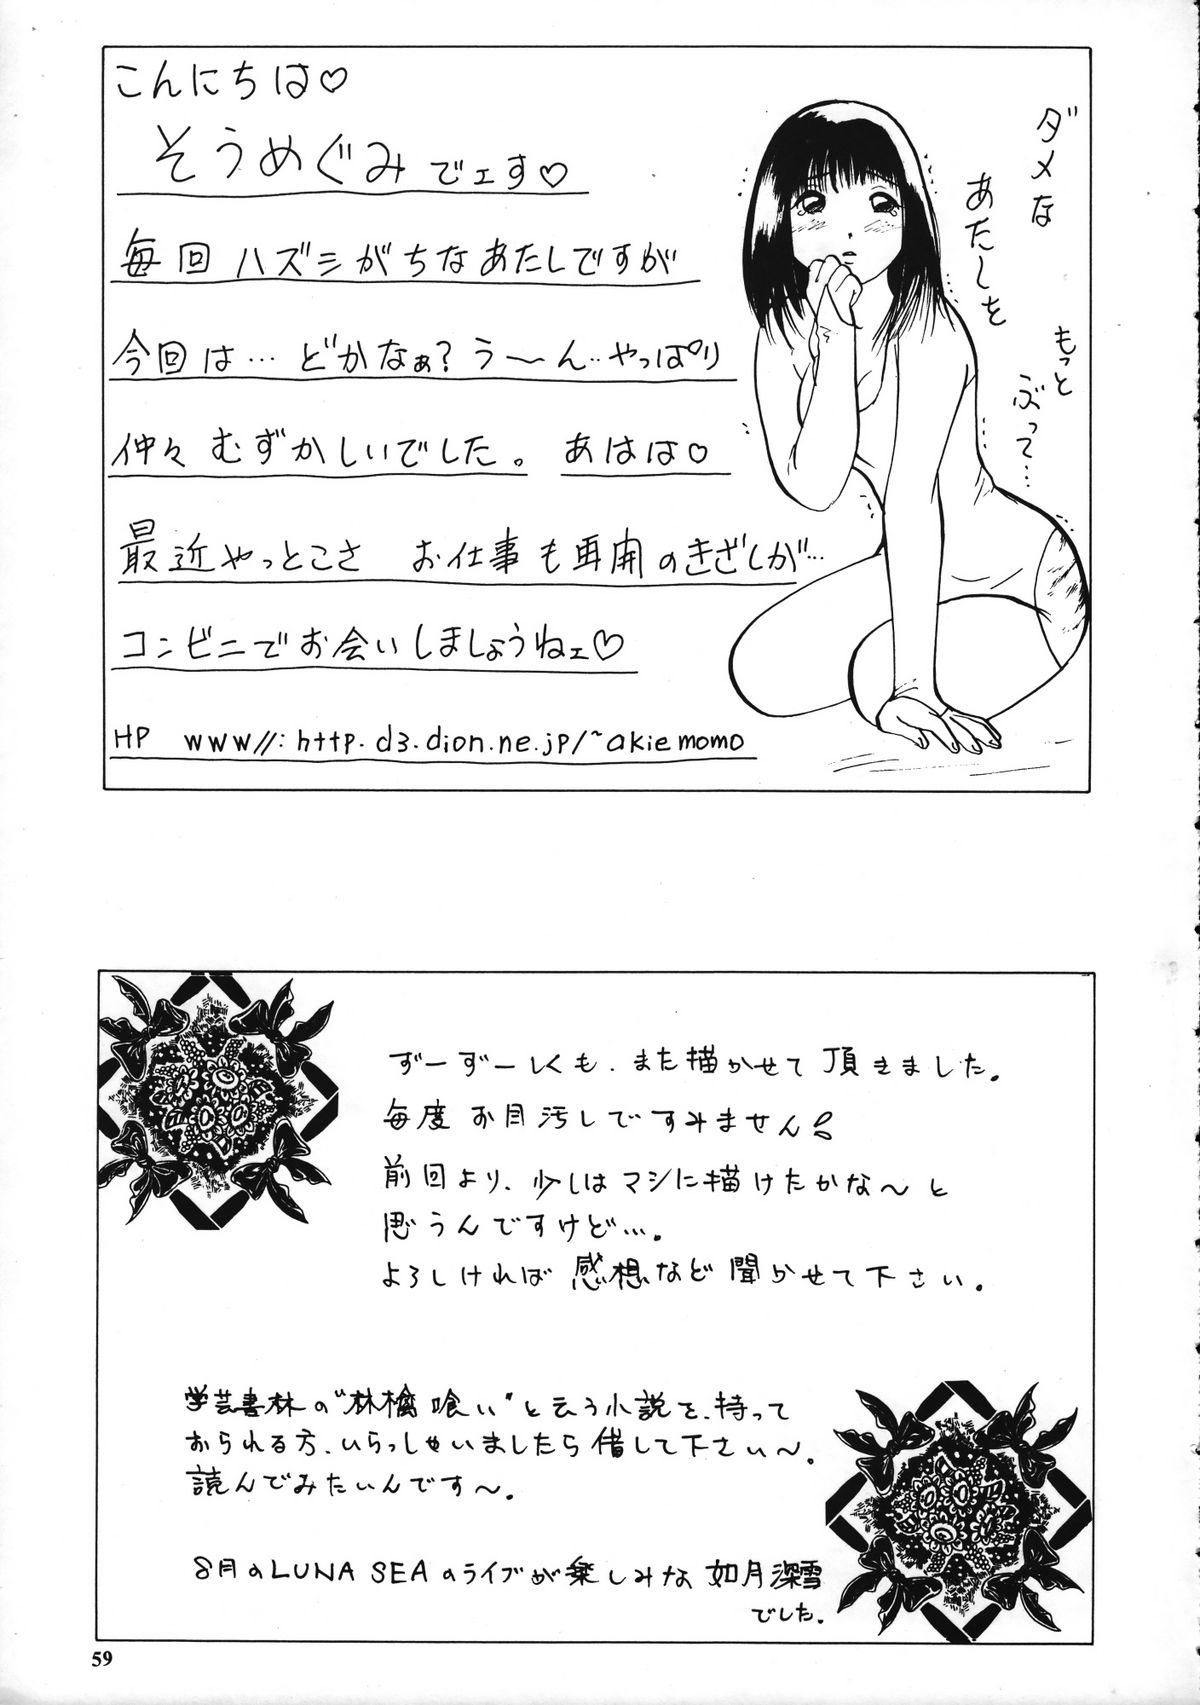 こんにちは♡
そうめぐみでェす♡
毎回ハズシがちなあたしですが
今回は…どかなぁ?う〜ん‥やっぱり
仲々むずかしいでした。 あはは♡
最近やっとこさ お仕事も再開のきざしが…
コンビニでお会いしましょうねェ♡
HP www//:http.d3.dion.ne.jp/~akiemomo
ダメな
あたしを
もっと
ぶって…
ずーずーしくも、また描かせて頂きました。
毎度お目汚しですみません!
前回より、少しはマシに描けたかな〜と
思うんですけど…。
よろしければ感想など聞かせて下さい。
学芸書林の"林檎喰い"と云う小説を、持って
おられる方、いらっしゃいましたら借して下さい〜。
読んでみたいんです〜。
8月のLUNA SEAのライブが楽しみな如月深雪
でした。
59